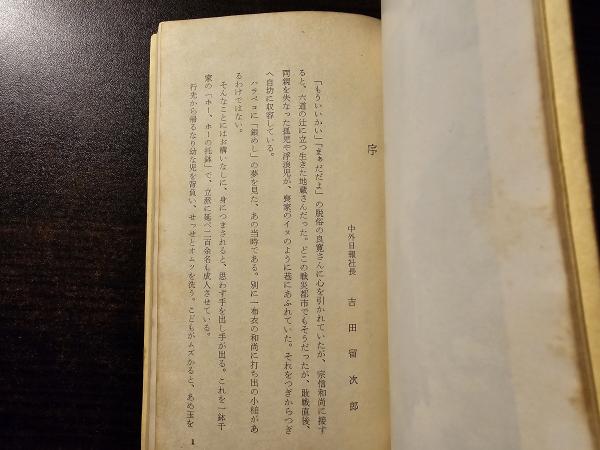 序
中外日報社長　吉田留次郎
「もういいかい」「まぁだだよ」の脱俗の良寛さんに心を引かれていたが、宗信和尚に接す
ると、六道の辻に立つ生きた地蔵さんだった。どこの戦災都市でもそうだったが、敗戦直後、
両親を失なった孤児や浮浪児が、喪家のイヌのように巷にあふれていた。それをつぎからつぎ
へ自坊に収容している。
ハラペコに「銀めし」の夢を見た、あの当時である。別に一布衣の和尚に打ち出の小槌があ
るわけではない。
そんなことにはお構いなしに、身につまされると、思わず手を出し手が出る。これを一鉢千
家の「ホー、ホーの托鉢」で、立派に延べ二百余名も成人させている。
行先から帰るなり幼な児を背負い、せっせとオムツを洗う。こどもがムズかると、あめ玉を
1